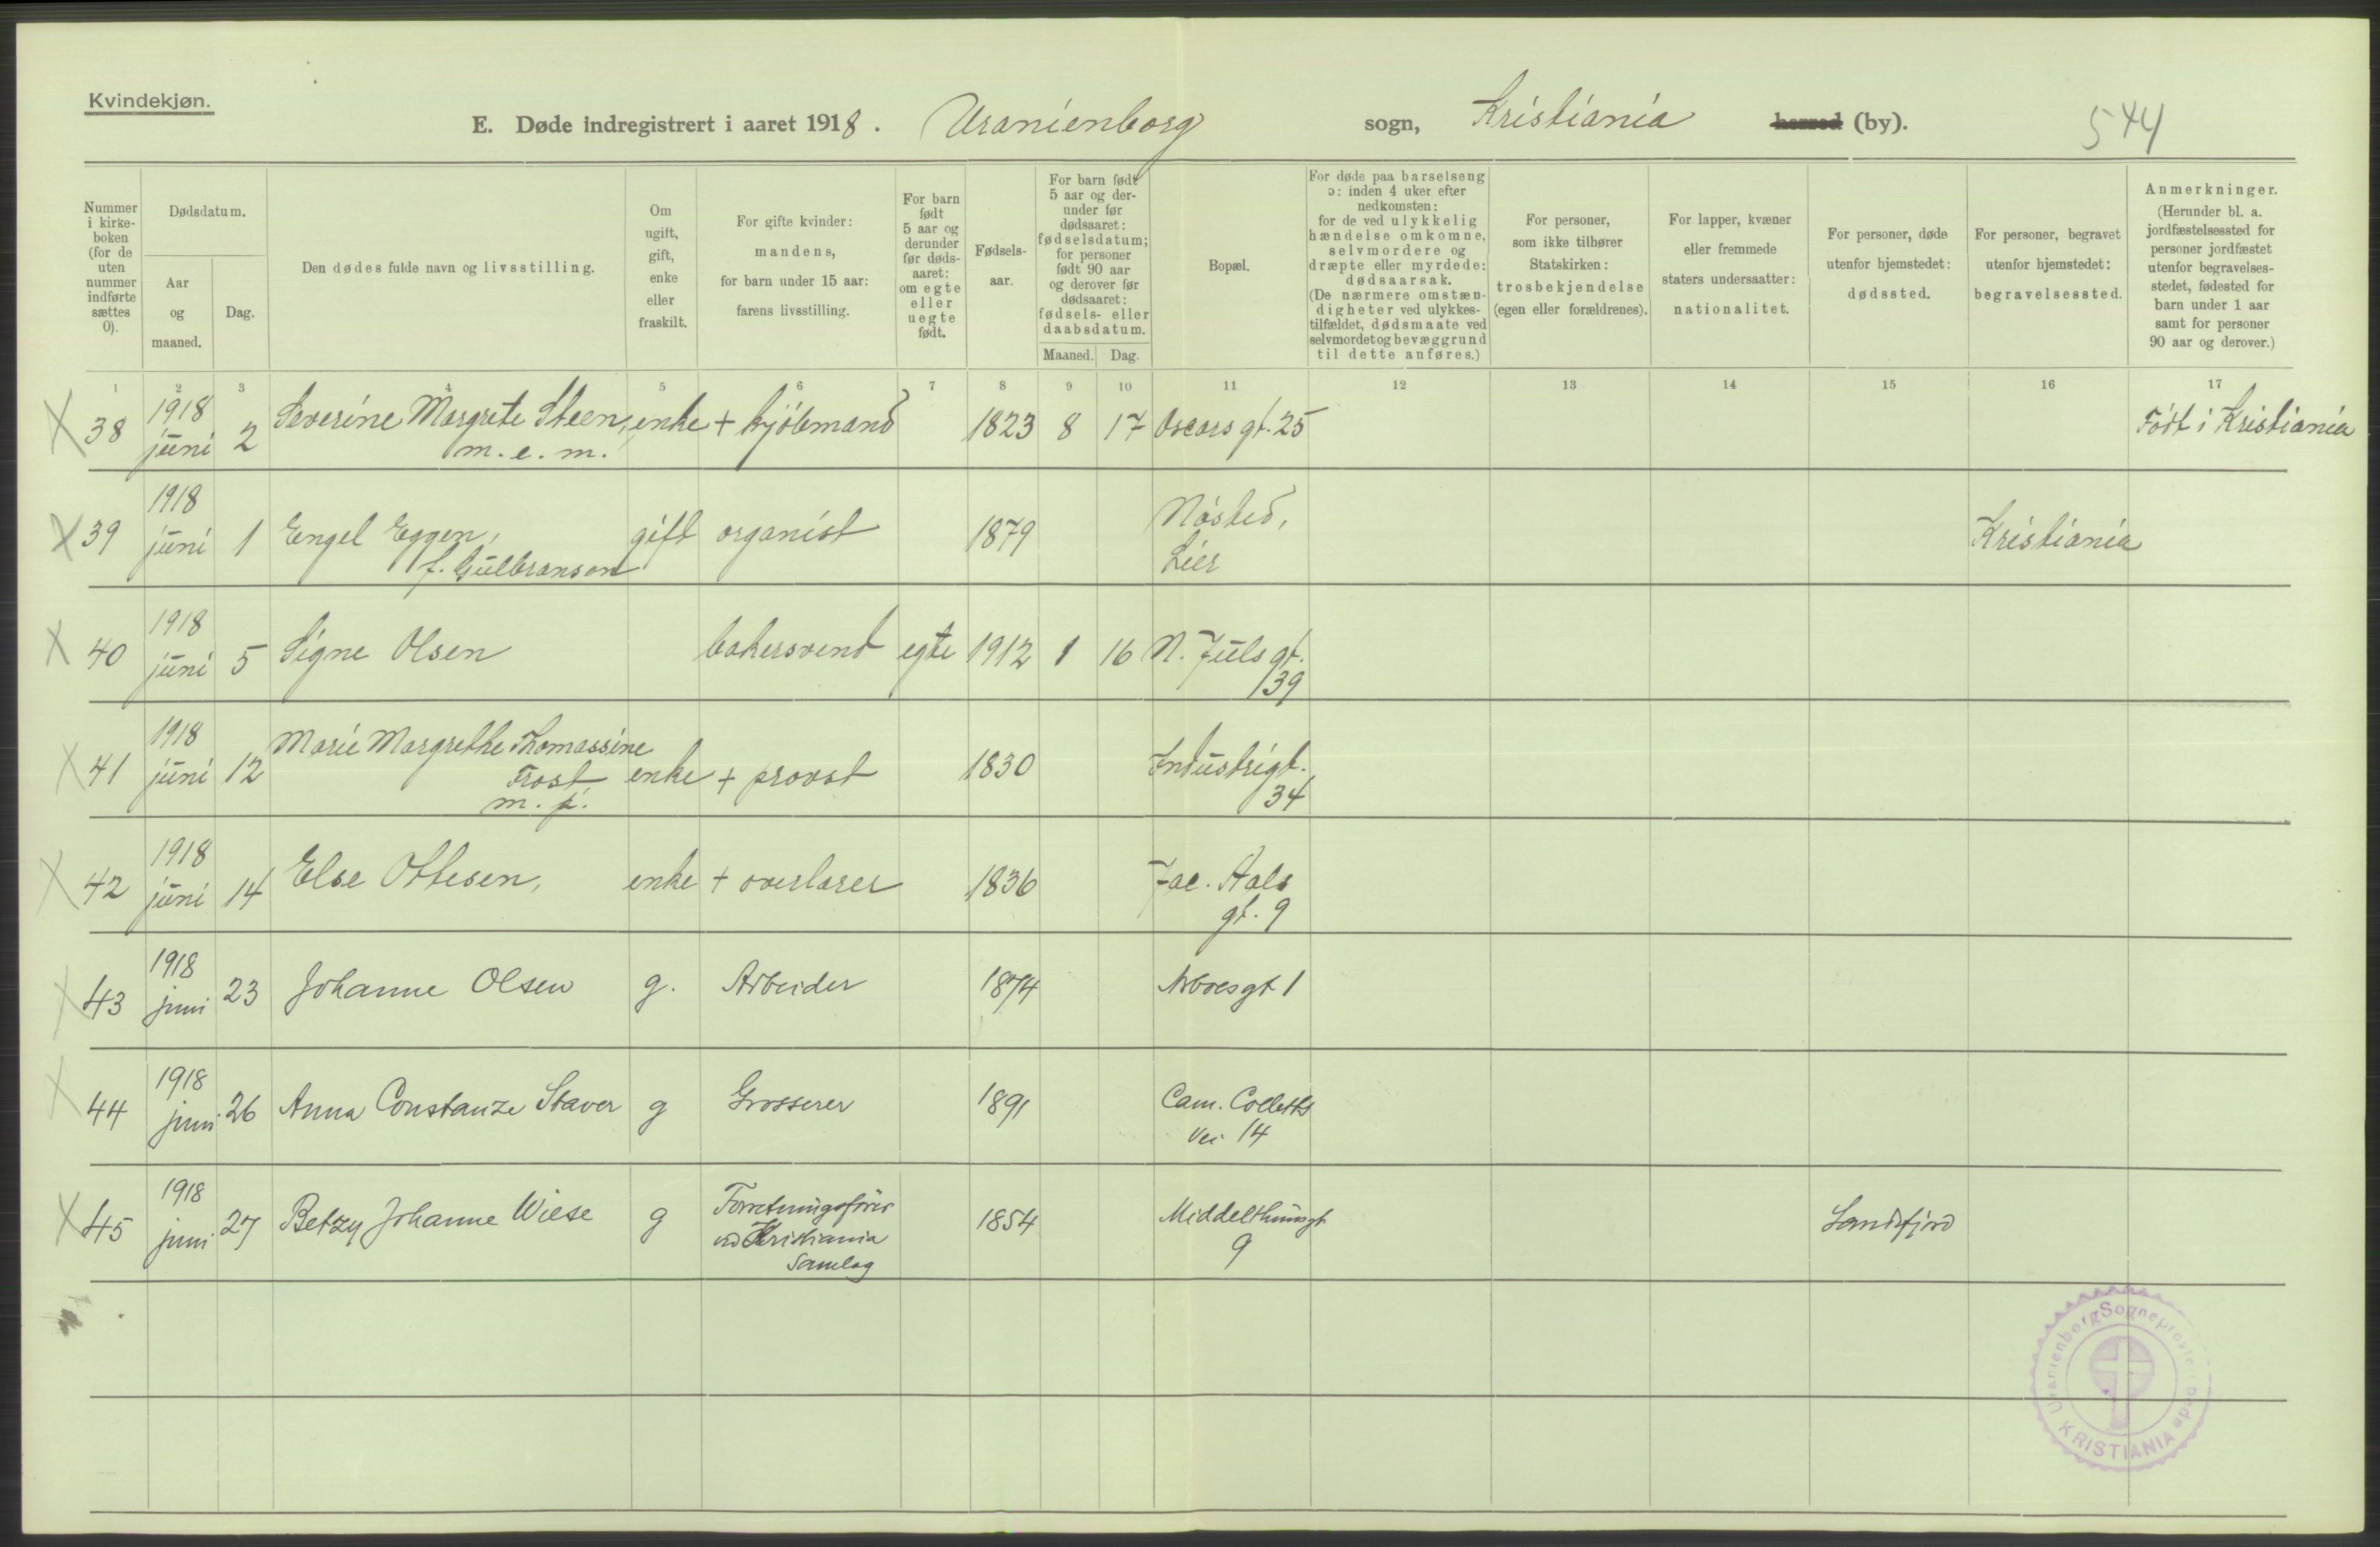 Kvindekjøn.
E. Døde indregistrert i aaret 1918. Uranienborg sogn, Kristiania herred (by). 544
Nummer i kirke-boken (for de uten nummer indførte sættes 0).
Dødsdatum.
Aar og maaned.
Dag.
Den dødes fulde navn og livsstilling.
Om ugift, gift, enke eller fraskilt.
For gifte kvinder: mandens, for barn under 15 aar: farens livsstilling.
For barn født 5 aar og derunder før døds-aaret: om egte eller uegte født.
Fødsels-aar.
For barn født 5 aar og der-under før dødsaaret: fødselsdatum; for personer født 90 aar og derover før dødsaaret: fødsels- eller daabsdatum.
Maaned. Dag.
Bopæl.
For døde paa barselseng ɔ: inden 4 uker efter nedkomsten: for de ved ulykkelig hændelse omkomne, selvmordere og dræpte eller myrdede: dødsaarsak. (De nærmere omstæn-digheter ved ulykkes-tilfældet, dødsmaate ved selvmordet og bevæggrund til dette anføres.)
For personer, som ikke tilhører Statskirken: trosbekjendelse (egen eller forældrenes).
For lapper, kvæner eller fremmede staters undersaatter: nationalitet.
For personer, døde utenfor hjemstedet: dødssted.
For personer, begravet utenfor hjemstedet: begravelsessted.
Anmerkninger. (Herunder bl. a. jordfæstelsessted for personer jordfæstet utenfor begravelses-stedet, fødested for barn under 1 aar samt for personer 90 aar og derover.)
1 2 3 4 5 6 7 8 9 10 11 12 13 14 15 16 17
X 38 1918 juni 2 Severine Margrete Steen, enke + kjöbmand 1823 8 17 Oscars gt. 25 Født i Kristiania
m. e. m.
X 39 1918 juni 1 Engel Eggen, gift organist 1879 Nøsted, Kristiania
f. Gulbranson Lier
X 40 1918 juni 5 Signe Olsen bakersvend egte 1912 1 16 N. Juls gt.
39
X 41 1918 juni 12 Marie Margrethe Thomassine
Frost enke + provst 1830 Industrigt.
m. p. 34
X 42 1918 juni 14 Else Ottesen, enke + overlærer 1836 Jac. Aals
gt. 9
X 43 1918 juni 23 Johanne Olsen g. Arbeider 1874 Arboesgt 1
X 44 1918 juni 26 Anna Constanze Staver g Grosserer 1891 Cam. Colletts
Vei 14
X 45 1918 juni 27 Betzy Johanne Wiese g Forretningsfører 1854 Middelthunsgt Sandefjord
ved Kristiania 9
Samlag
Uranienborg Sogneprestembede
KRISTIANIA